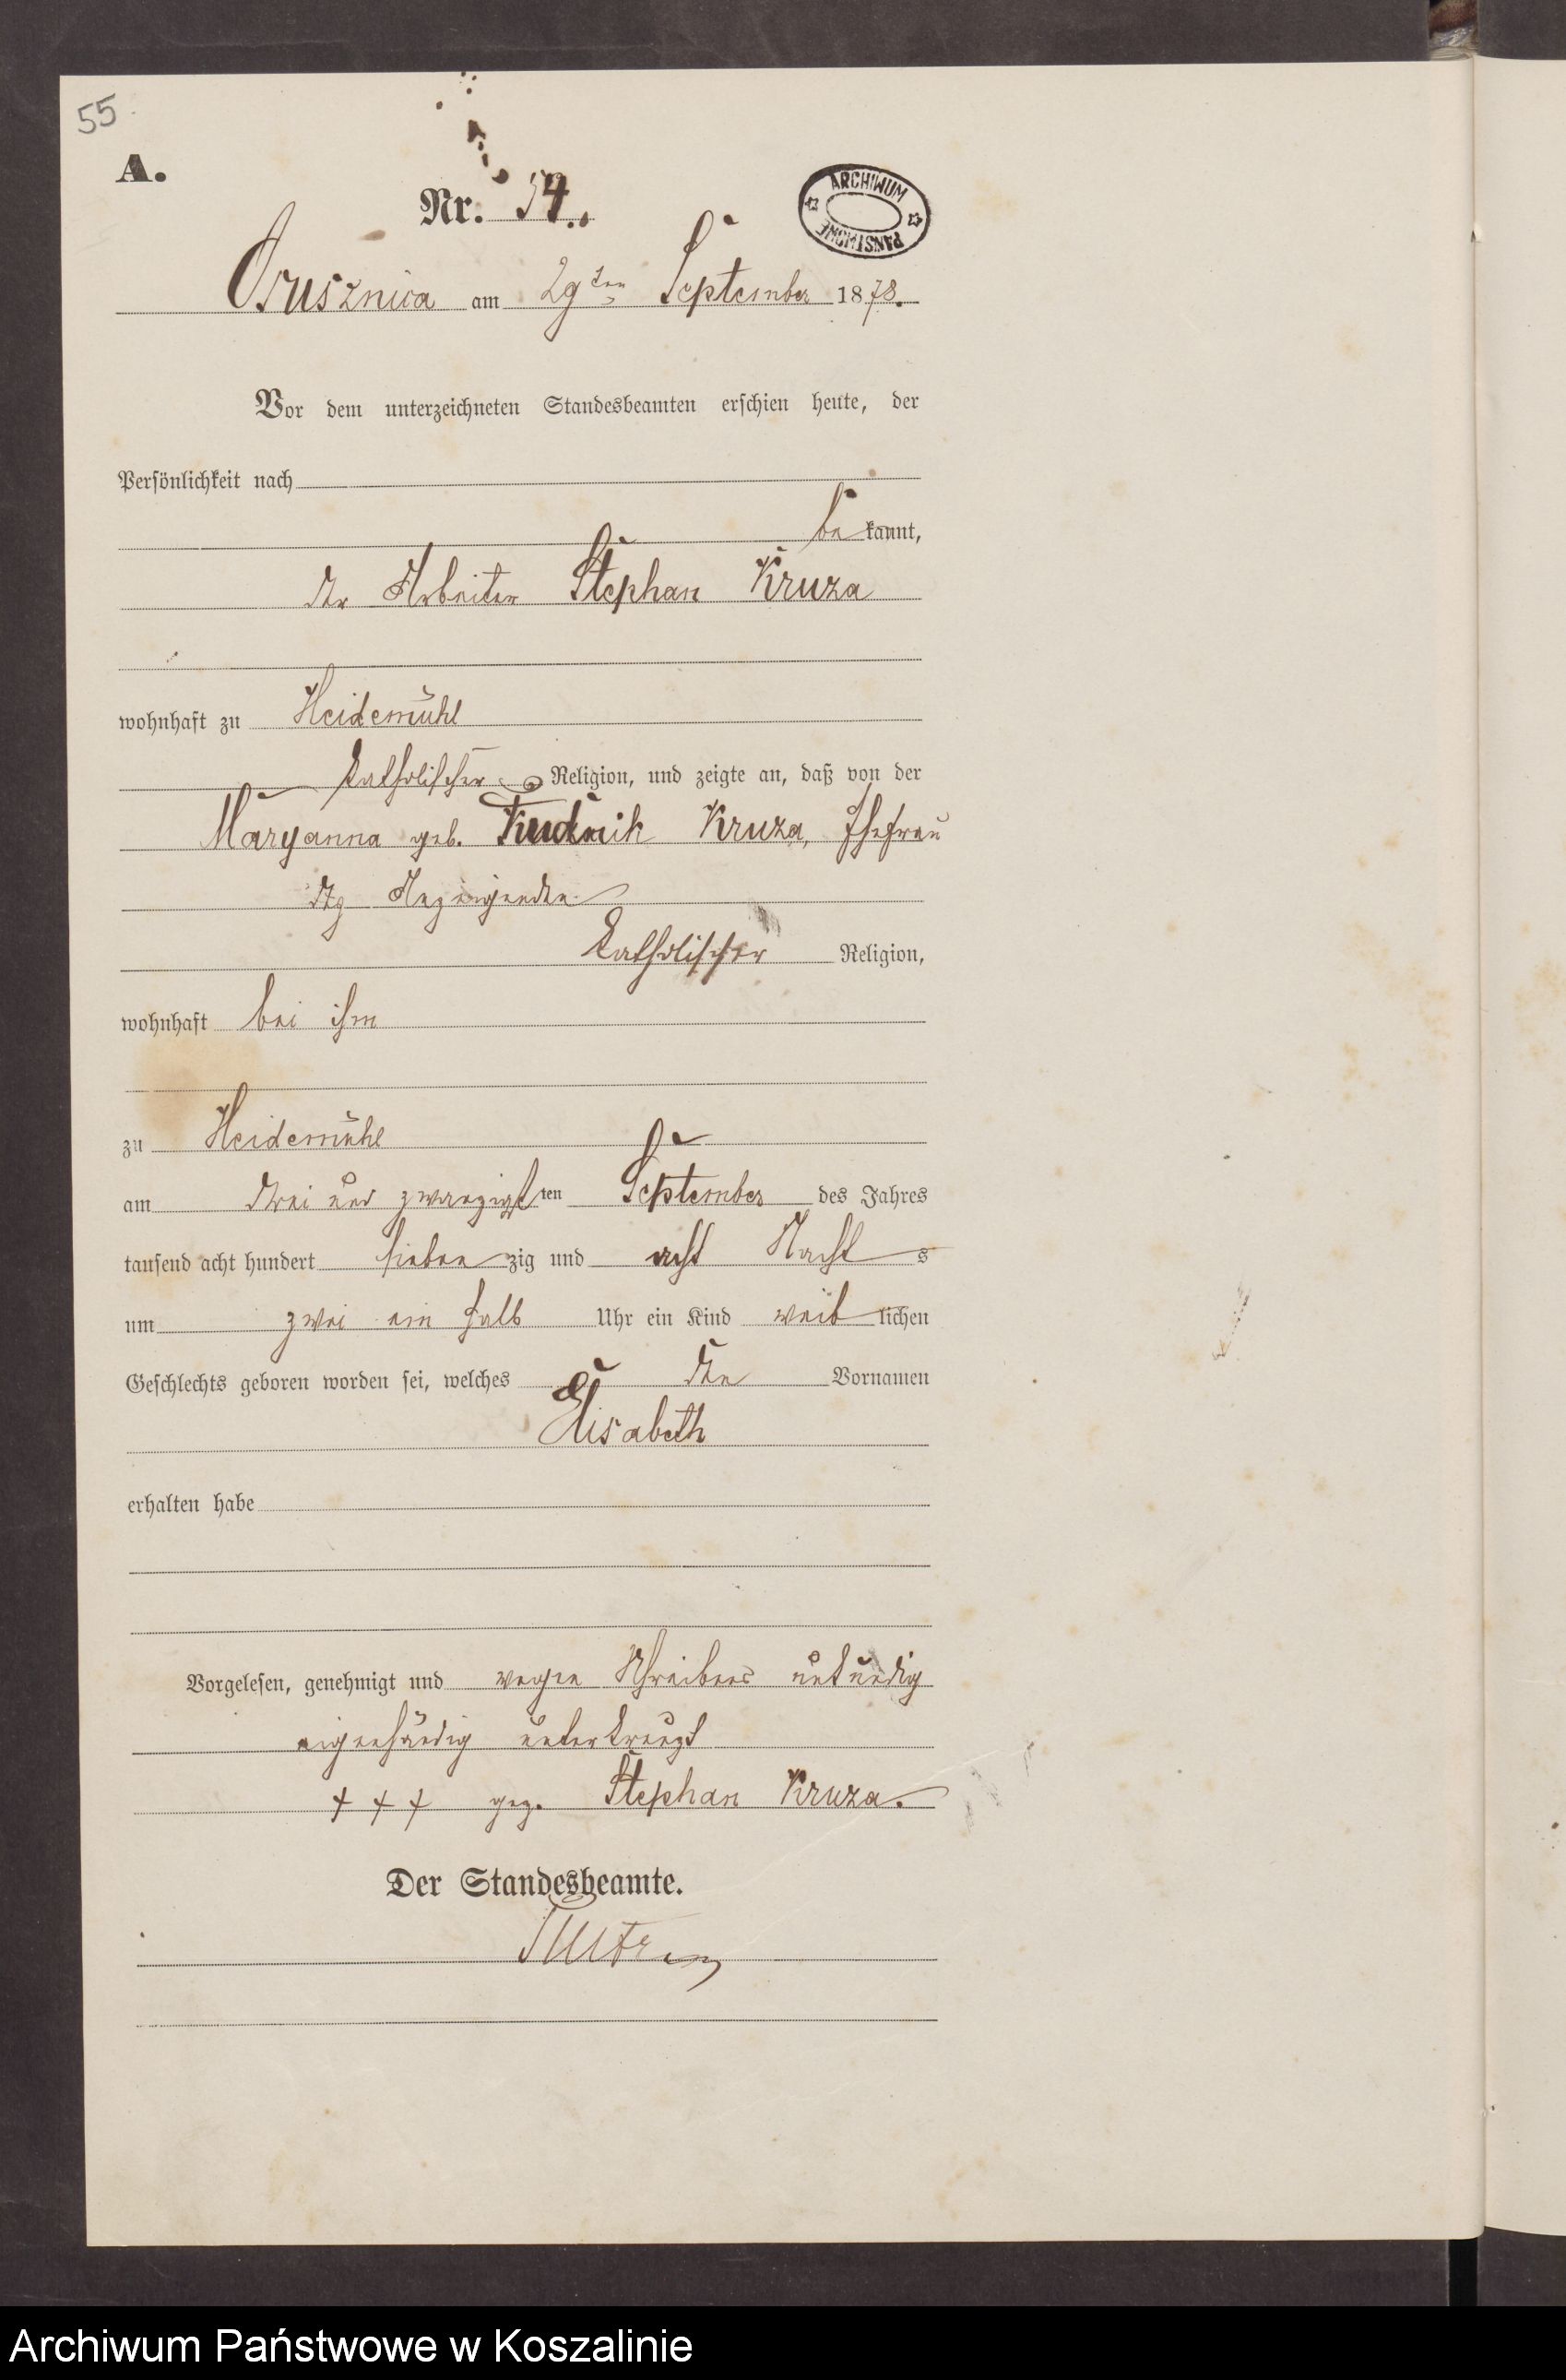 55
A.
Nr. 54.
ARCHIWUM PAŃSTWOWE
Osusznica am 29ten September 1878.
Vor dem unterzeichneten Standesbeamten erschien heute, der
Persönlichkeit nach
be kannt,
der Arbeiter Stephan Kruza
wohnhaft zu Heidemühl
katholischer Religion, und zeigte an, daß von der
Maryanna geb. Kruza, Ehefrau
des Anzeigenden
katholischer Religion,
wohnhaft bei ihm
zu Heidemühl
am drei und zwanzigsten September des Jahres
tausend acht hundert sieben zig und acht Nacht s
um zwei ein halb Uhr ein Kind weib lichen
Geschlechts geboren worden sei, welches den Vornamen
Elisabeth
erhalten habe
Vorgelesen, genehmigt und wegen Schreibens unkundig
eigenhändig unterkreuzt
+ + + gez. Stephan Kruza.
Der Standesbeamte.
Archiwum Państwowe w Koszalinie